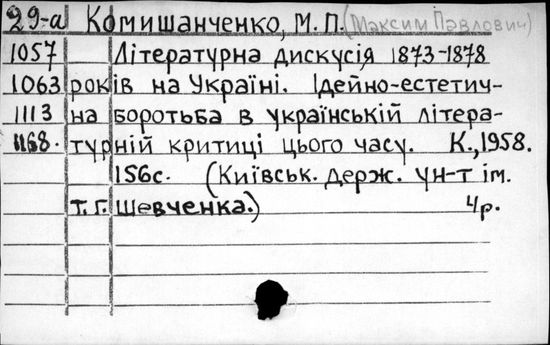 29-а Комишанченко, М. П. (Максим Павлович)
1057 Літературна дискусія 1873-1878
1063 років на Україні. Ідейно-естетич-
1113 на боротьба в українській літера-
1168. турній критиці цього часу. К., 1958.
156с. (Київськ. держ. ун-т ім.
Т. Г. Шевченка.) 4р.